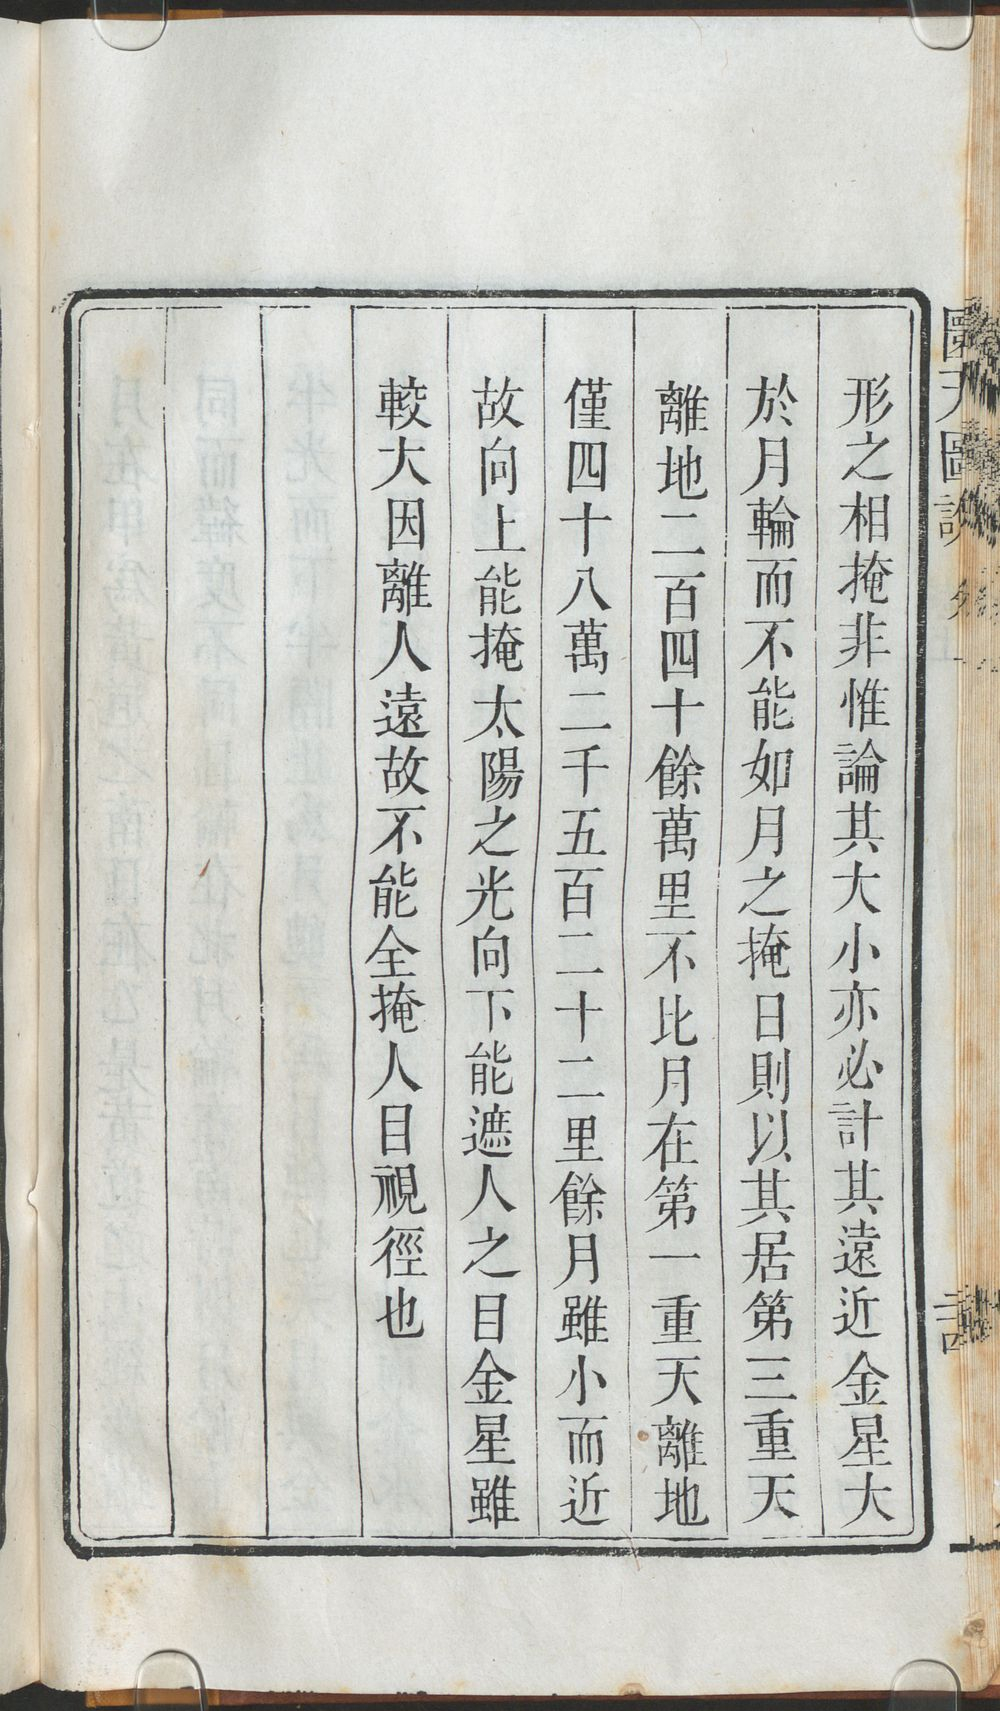 形之相掩非惟論其大小亦必計其遠近金星大
於月輪而不能如月之掩日則以其居第三重天
離地二百四十餘萬里不比月在第一重天離地
僅四十八萬二千五百二十二里餘月雖小而近
故向上能掩太陽之光向下能遮人之目金星雖
較大因離人遠故不能全掩人目視徑也